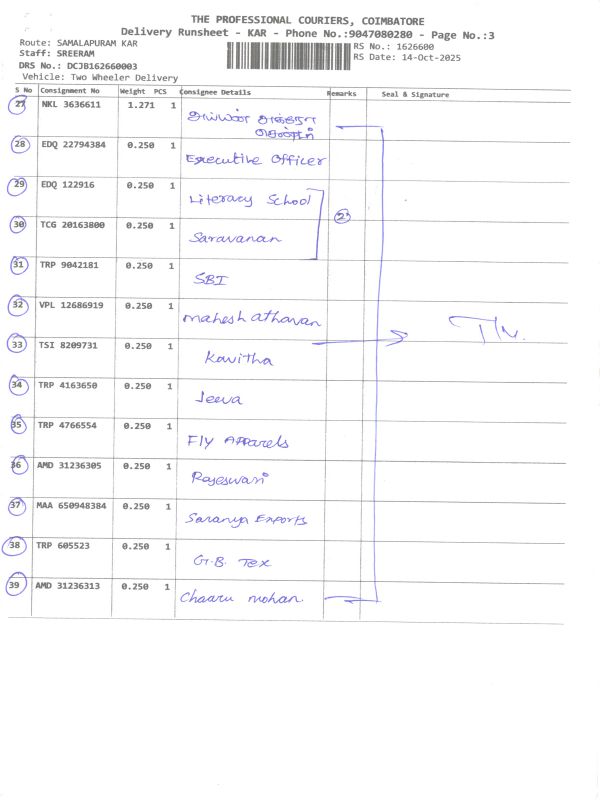 THE PROFESSIONAL COURIERS, COIMBATORE
Delivery Runsheet - KAR - Phone No.:9047080280 - Page No.:3
Route: SAMALAPURAM KAR
RS No.: 1626600
Staff: SREERAM
RS Date: 14-Oct-2025
DRS No.: DCJB162660003
Vehicle: Two Wheeler Delivery
S No Consignment No Weight PCS Consignee Details Remarks Seal & Signature
27 NKL 3636611 1.271 1
28 EDQ 22794384 0.250 1 Executive Officer
29 EDQ 122916 0.250 1 Literacy School
2
30 TCG 20163800 0.250 1 Saravanan
31 TRP 9042181 0.250 1 SBI
32 VPL 12686919 0.250 1 mahesh athavan
33 TSI 8209731 0.250 1 Kavitha
34 TRP 4163650 0.250 1 Jeeva
35 TRP 4766554 0.250 1 Fly Apparels
36 AMD 31236305 0.250 1 Rajeswari
37 MAA 650948384 0.250 1 Saranya Exports
38 TRP 605523 0.250 1 G.B. Tex
39 AMD 31236313 0.250 1 Chaaru mohan.